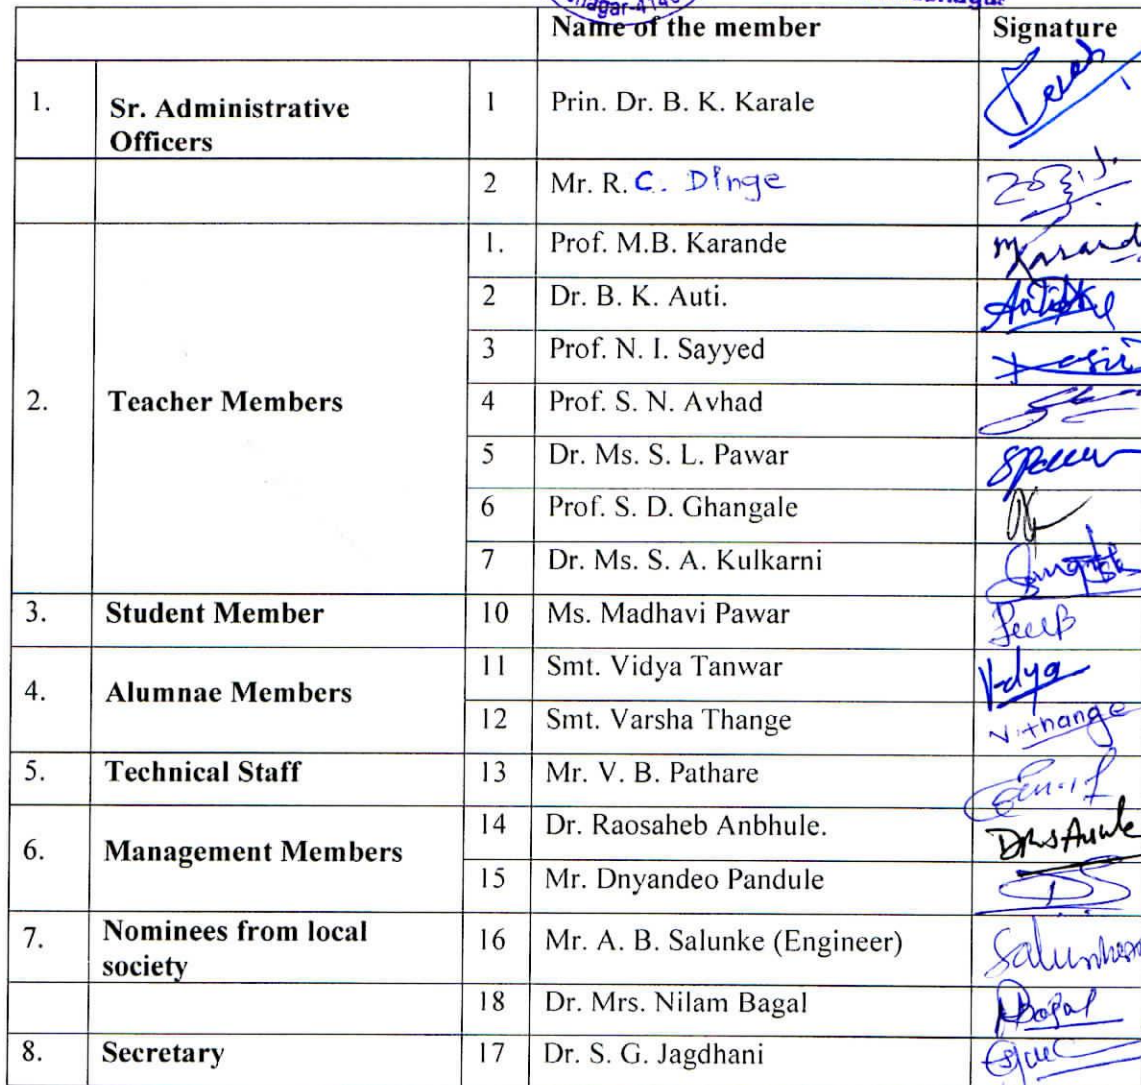 Name of the member Signature
1. Sr. Administrative Officers 1 Prin. Dr. B. K. Karale
2 Mr. R. C. Dinge
1. Prof. M.B. Karande
2 Dr. B. K. Auti.
3 Prof. N. I. Sayyed
2. Teacher Members 4 Prof. S. N. Avhad
5 Dr. Ms. S. L. Pawar
6 Prof. S. D. Ghangale
7 Dr. Ms. S. A. Kulkarni
3. Student Member 10 Ms. Madhavi Pawar
4. Alumnae Members 11 Smt. Vidya Tanwar Vidya
12 Smt. Varsha Thange V.thange
5. Technical Staff 13 Mr. V. B. Pathare
6. Management Members 14 Dr. Raosaheb Anbhule.
15 Mr. Dnyandeo Pandule
7. Nominees from local society 16 Mr. A. B. Salunke (Engineer)
18 Dr. Mrs. Nilam Bagal
8. Secretary 17 Dr. S. G. Jagdhani